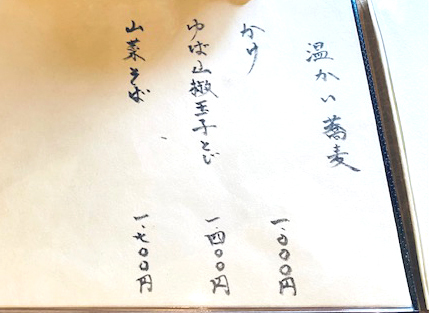 温かい蕎麦
かけ 一、〇〇〇円
ゆば山椒玉子とじ 一、四〇〇円
山菜そば 一、七〇〇円